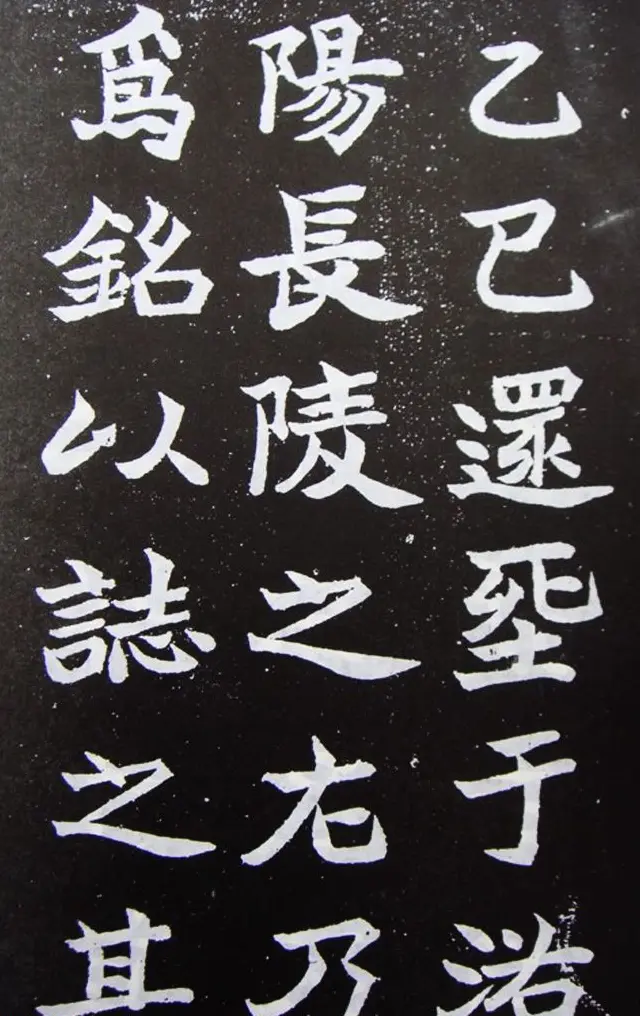 乙巳還塟于洛
陽長陵之左乃
爲銘以誌之其